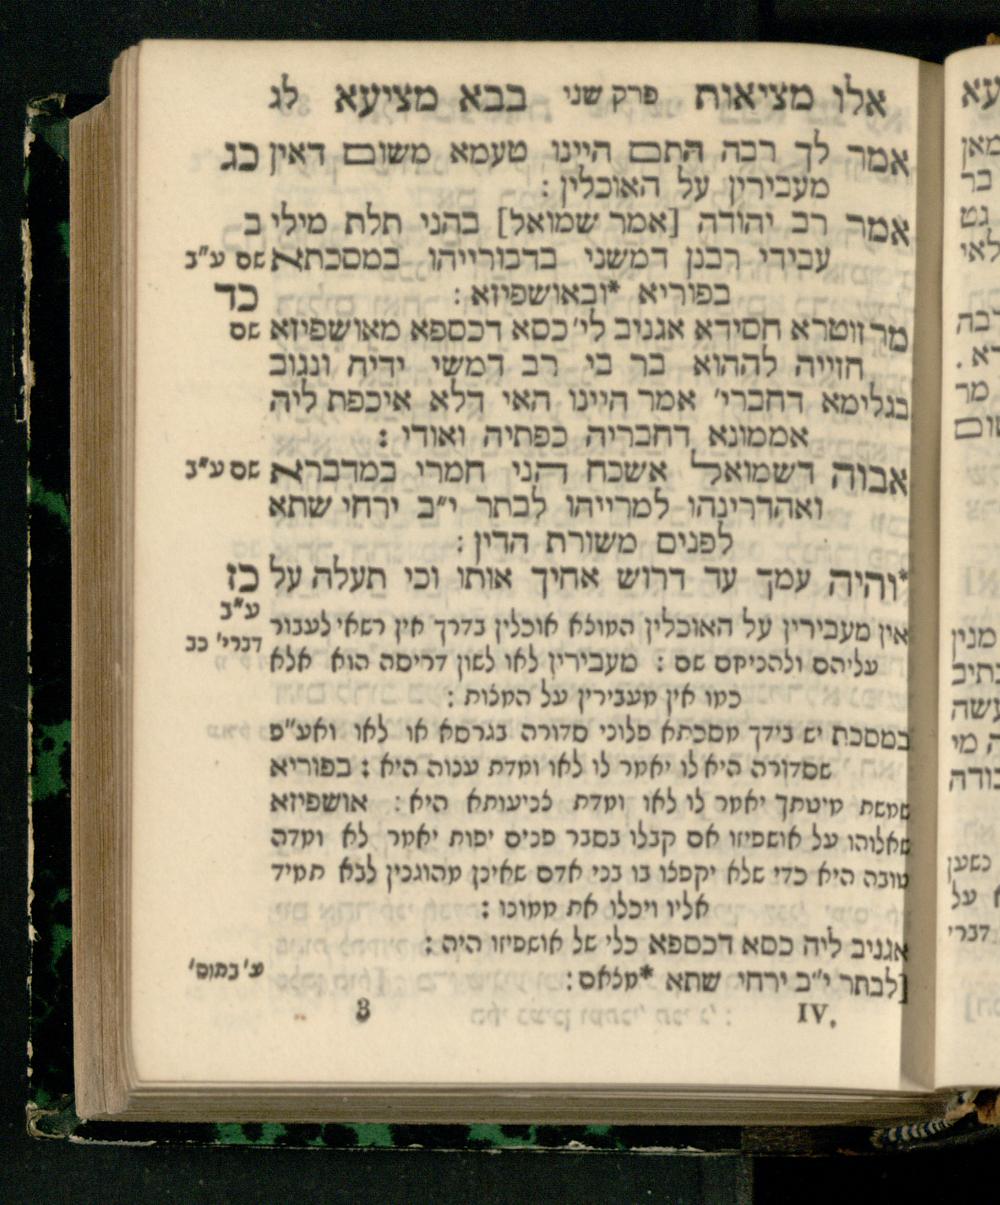 אלו מציאות פרק שני בבא מציעא לג
אמר לך רבה התם היינו טעמא משום דאין כג
מעבירין על האוכלין :
אמר רב יהודה [אמר שמואל] בהני תלת מילי ב
עבידי רבנן דמשני בדבורייהו במסכתא שם ע״ב
בפוריא *ובאושפיזא : כד
מר זוטרא חסידא אגניב לי׳ כסא דכספא מאושפיזא שם
חזייה לההוא בר בי רב דמשי ידיה ונגוב
בגלימא דחברי׳ אמר היינו האי דלא איכפת ליה
אממונא דחבריה כפתיה ואודי :
אבוה דשמואל אשכח הני חמרי במדברא שם ע״ב
ואהדרינהו למרייהו לבתר י״ב ירחי שתא
לפנים משורת הדין :
*והיה עמך עד דרוש אחיך אותו וכי תעלה על כז
ע״ב
אין מעבירין על האוכלין המוצא אוכלין בדרך אין רשאי לעבור
דברי׳ כב
עליהם ולהניחם שם : מעבירין לאו לשון דריסה הוא אלא
כמו אין מעבירין על המצות :
במסכת יש בידך מסכתא פלוני סדורה בגרסא או לאו ואע״פ
שסדורה היא לו יאמר לו לאו ומדת ענוה היא : בפוריא
שמשת מיטתך יאמר לו לאו ומדת צניעותא היא : אושפיזא
שאלוהו על אושפיזו אם קבלו בסבר פנים יפות יאמר לא ומדה
טובה היא כדי שלא יקפצו בו בני אדם שאינן מהוגנין לבא תמיד
אליו ויכלו את ממונו :
אגניב ליה כסא דכספא כלי של אושפיזו היה :
[לבתר י״ב ירחי שתא *מצאם : ע׳ בתוס׳
IV. 3